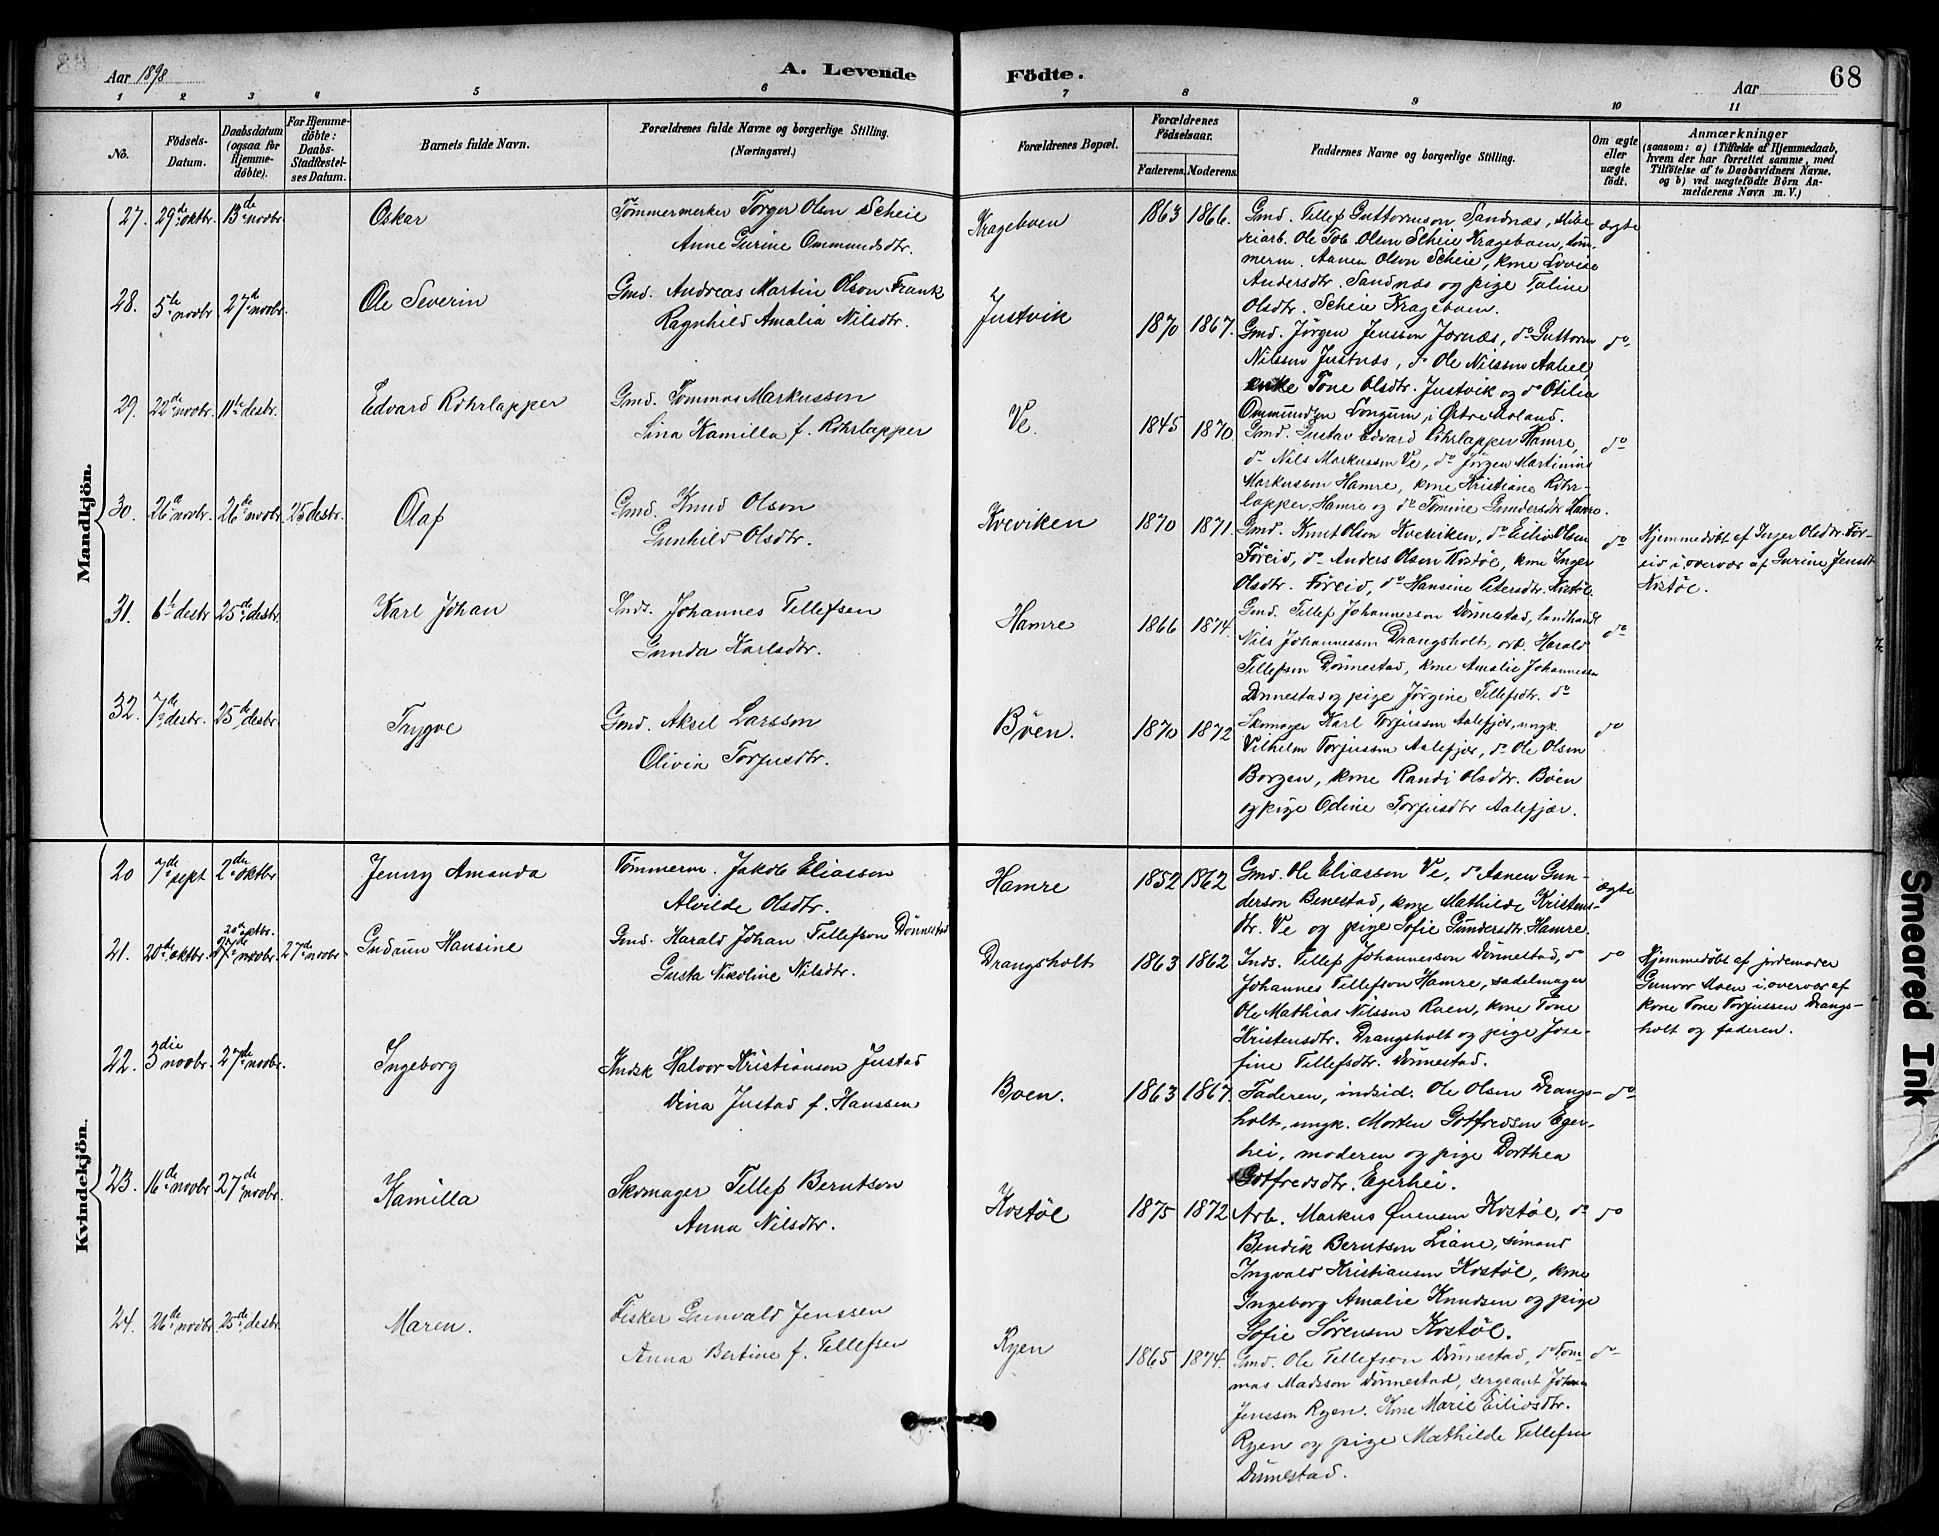 Aar 1898
A. Levende
Födte.
Aar
68
1 2 3 4 5 6 7 8 9 10 11
No.
Födsels-
Datum.
Daabsdatum
(ogsaa for
Hjemme-
döbte).
For Hjemme-
döbte:
Daabs-
Stadfæstel-
ses Datum.
Barnets fulde Navn.
Forældrenes fulde Navne og borgerlige Stilling.
(Næringsvei.)
Forældrenes Bopæl.
Forældrenes
Födselsaar.
Faderens. Moderens.
Faddernes Navne og borgerlige Stilling.
Om ægte
eller
uægte
födt.
Anmærkninger
(saasom: a) i Tilfælde af Hjemmedaab,
hvem der har forrettet samme, med
Tilföielse af to Daabsvidners Navne.
og b) ved uægtefödte Börn An-
melderens Navn m. V.)
Mandkjön.
27. 29de oktbr. 13de novbr. Oskar
Tømmermerker Torger Olson Scheie
Anne Gurine Ommundsdtr.
Krageboen 1863 1866.
Gmd. Tellef Guttormson Sandnæs,
arb. Ole Tob. Olsen Scheie Krageboen, tøm-
merm. Aanen Olson Scheie, kone Lovise
Andersdtr. Sandnæs og pige Taline
Olsdtr. Scheie Krageboen.
ægte
28. 5te novbr. 27de novbr. Ole Severin
Gmd. Andreas Martin Olson Frank
Ragnhild Amalia Nilsdtr.
Justvik 1870 1867.
Gmd. Jørgen Jensson Jornæs, do Guttorm
Nilssen Justnæs, do Ole Nilssen Aabel,
enke Tone Olsdtr. Justvik og do Otilia
Ommundsen Longum, i Østre Moland.
do
29. 22de novbr. 11te desbr. Edvard Röhrlapper
Gmd. Tommas Markusson
Lina Kamilla f. Röhrlapper
Ve. 1845 1870
Gmd. Gustav Edvard Röhrlapper Hamre,
do Nils Markussen Ve, do Jørgen Martinius
Markussen Hamre, kone Kristiane Röhr-
lapper Hamre og do Tomine Gundersdtr Hamre.
do
30. 26de novbr. 26de novbr. 25 desbr. Olaf
Gmd. Knud Olson
Gunhild Olsdtr.
Kveviken 1870 1871.
Gmd. Knut Olson Kveviken, do Eiliv Olsen
Føreid, do Anders Olsen Kostøl, kone Inger
Olsdtr. Føreid, do Hansine Petersdtr. Kostøl
do
Hjemmedøbt af Inger Olsdtr. Før-
eid i overvær af Gurine Jensdtr
Kostøl.
31. 6te desbr 25de desbr. Karl Johan
Inds. Johannes Tellefsen
Gunda Karlsdtr.
Hamre 1866 1874.
Gmd. Tellef Johannesson Dønnestad, landhandl
Nils Johannessen Drangsholt, arb. Harald
Tellefsen Dønnestad, kone Amalie Johannessen
Dønnestad og pige Jørgine Tellefsdtr. do
do
32. 7de desbr. 25de desbr. Trygve
Gmd. Aksel Larsson
Olivia Torjusdtr.
Bøen. 1870 1872
Skomager Karl Torjussen Aalefjær, ungk.
Vilhelm Torjussen Aalefjær, do Ole Olsen
Borgen, kone Randi Olsdtr. Böen
og pige Odine Torjusdtr Aalefjær.
do
Kvindekjön.
20 7de sept 2den oktbr Jenny Amanda
Tømmerm. Jakob Eliasson
Alvilde Olsdtr.
Hamre 1852 1862
Gmd. Ole Eliasson Ve, do Asnen Gun-
derson Benestad, kone Mathilde Kristens-
dtr. Ve og pige Sofie Gundersdtr. Hamre.
ægte
21. 20de oktbr. 20de oktbr.
27de novbr. 27de novbr. Gudrun Hansine
Gmd. Harald Johan Tellefson Dønnestad
Gusta Nikoline Nilsdtr.
Drangsholt 1863 1862
Inds. Tellef Johannesson Dønnestad, do
Johannes Tellefson Hamre, sadelmager
Ole Mathias Nilssen Roen, kone Tone
Kristensdtr. Drangsholt og pige Jose-
fine Tellefsdtr. Dønnestad.
do
Hjemmedøbt af jordemoder
Gunvor Moen i overvær af
kone Tone Torjussen Drangs-
holt og faderen.
22. 3die novbr. 27de novbr. Ingeborg
Indsk Halvor Kristianson Justad
Dina Justad f. Hanssen
Boen. 1863 1867.
Faderen, indsid. Ole Olsen Drangs-
holt, ungk. Morten Gotfredsen Eger-
hei, moderen og pige Dorthea
Gotfredsdtr. Egerhei.
do
23. 16de novbr. 27de novbr. Kamilla
Skomager Tellef Berntsen
Anna Nilsdtr.
Kostøl 1875 1872
Arb. Markus Øvensen Kostøl, do
Bendik Berntsen Liane, sømand
Ingvald Kristiansen Kostøl, kone
Ingeborg Amalie Knudsen og pige
Sofie Sørensen Kostøl.
do
24. 26de novbr. 25de desbr. Maren.
Fisker Gunvald Jenssen
Anna Bertine f. Tellefsen
Ryen 1865 1874.
Gmd. Ole Tellefson Dønnestad, do Tom-
mas Madsson Dønnestad, sergeant Johan
Jensson Ryen. Kone Marie Eilivsdtr.
Ryen og pige Mathilde Tellefsen
Dønnestad.
do
Smeared Ink